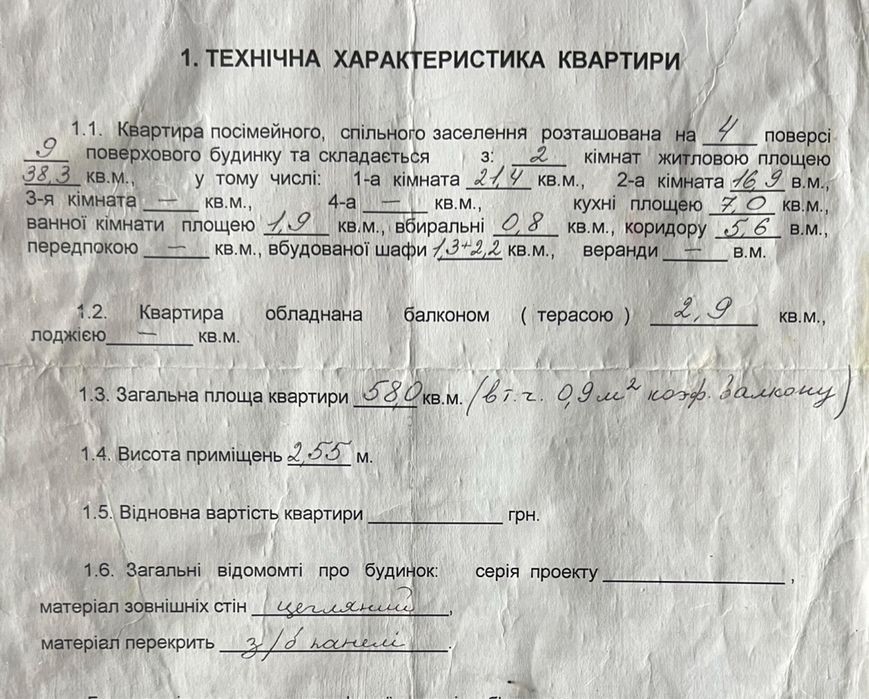 1. ТЕХНІЧНА ХАРАКТЕРИСТИКА КВАРТИРИ
1.1. Квартира посімейного, спільного заселення розташована на 4 поверсі
9 поверхового будинку та складається з: 2 кімнат житловою площею
38,3 кв.м., у тому числі: 1-а кімната 21,4 кв.м., 2-а кімната 16,9 в.м.,
3-я кімната — кв.м., 4-а — кв.м., кухні площею 7,0 кв.м.,
ванної кімнати площею 1,9 кв.м., вбиральні 0,8 кв.м., коридору 5,6 в.м.,
передпокою — кв.м., вбудованої шафи 1,3+2,2 кв.м., веранди — в.м.
1.2. Квартира обладнана балконом ( терасою ) 2,9 кв.м.,
лоджією — кв.м.
1.3. Загальна площа квартири 58,0 кв.м. (в т.ч. 0,9 м² коэф. балкону)
1.4. Висота приміщень 2,55 м.
1.5. Відновна вартість квартири ______ грн.
1.6. Загальні відомомті про будинок: серія проекту ______,
матеріал зовнішніх стін цегляний,
матеріал перекрить з/б панелі.